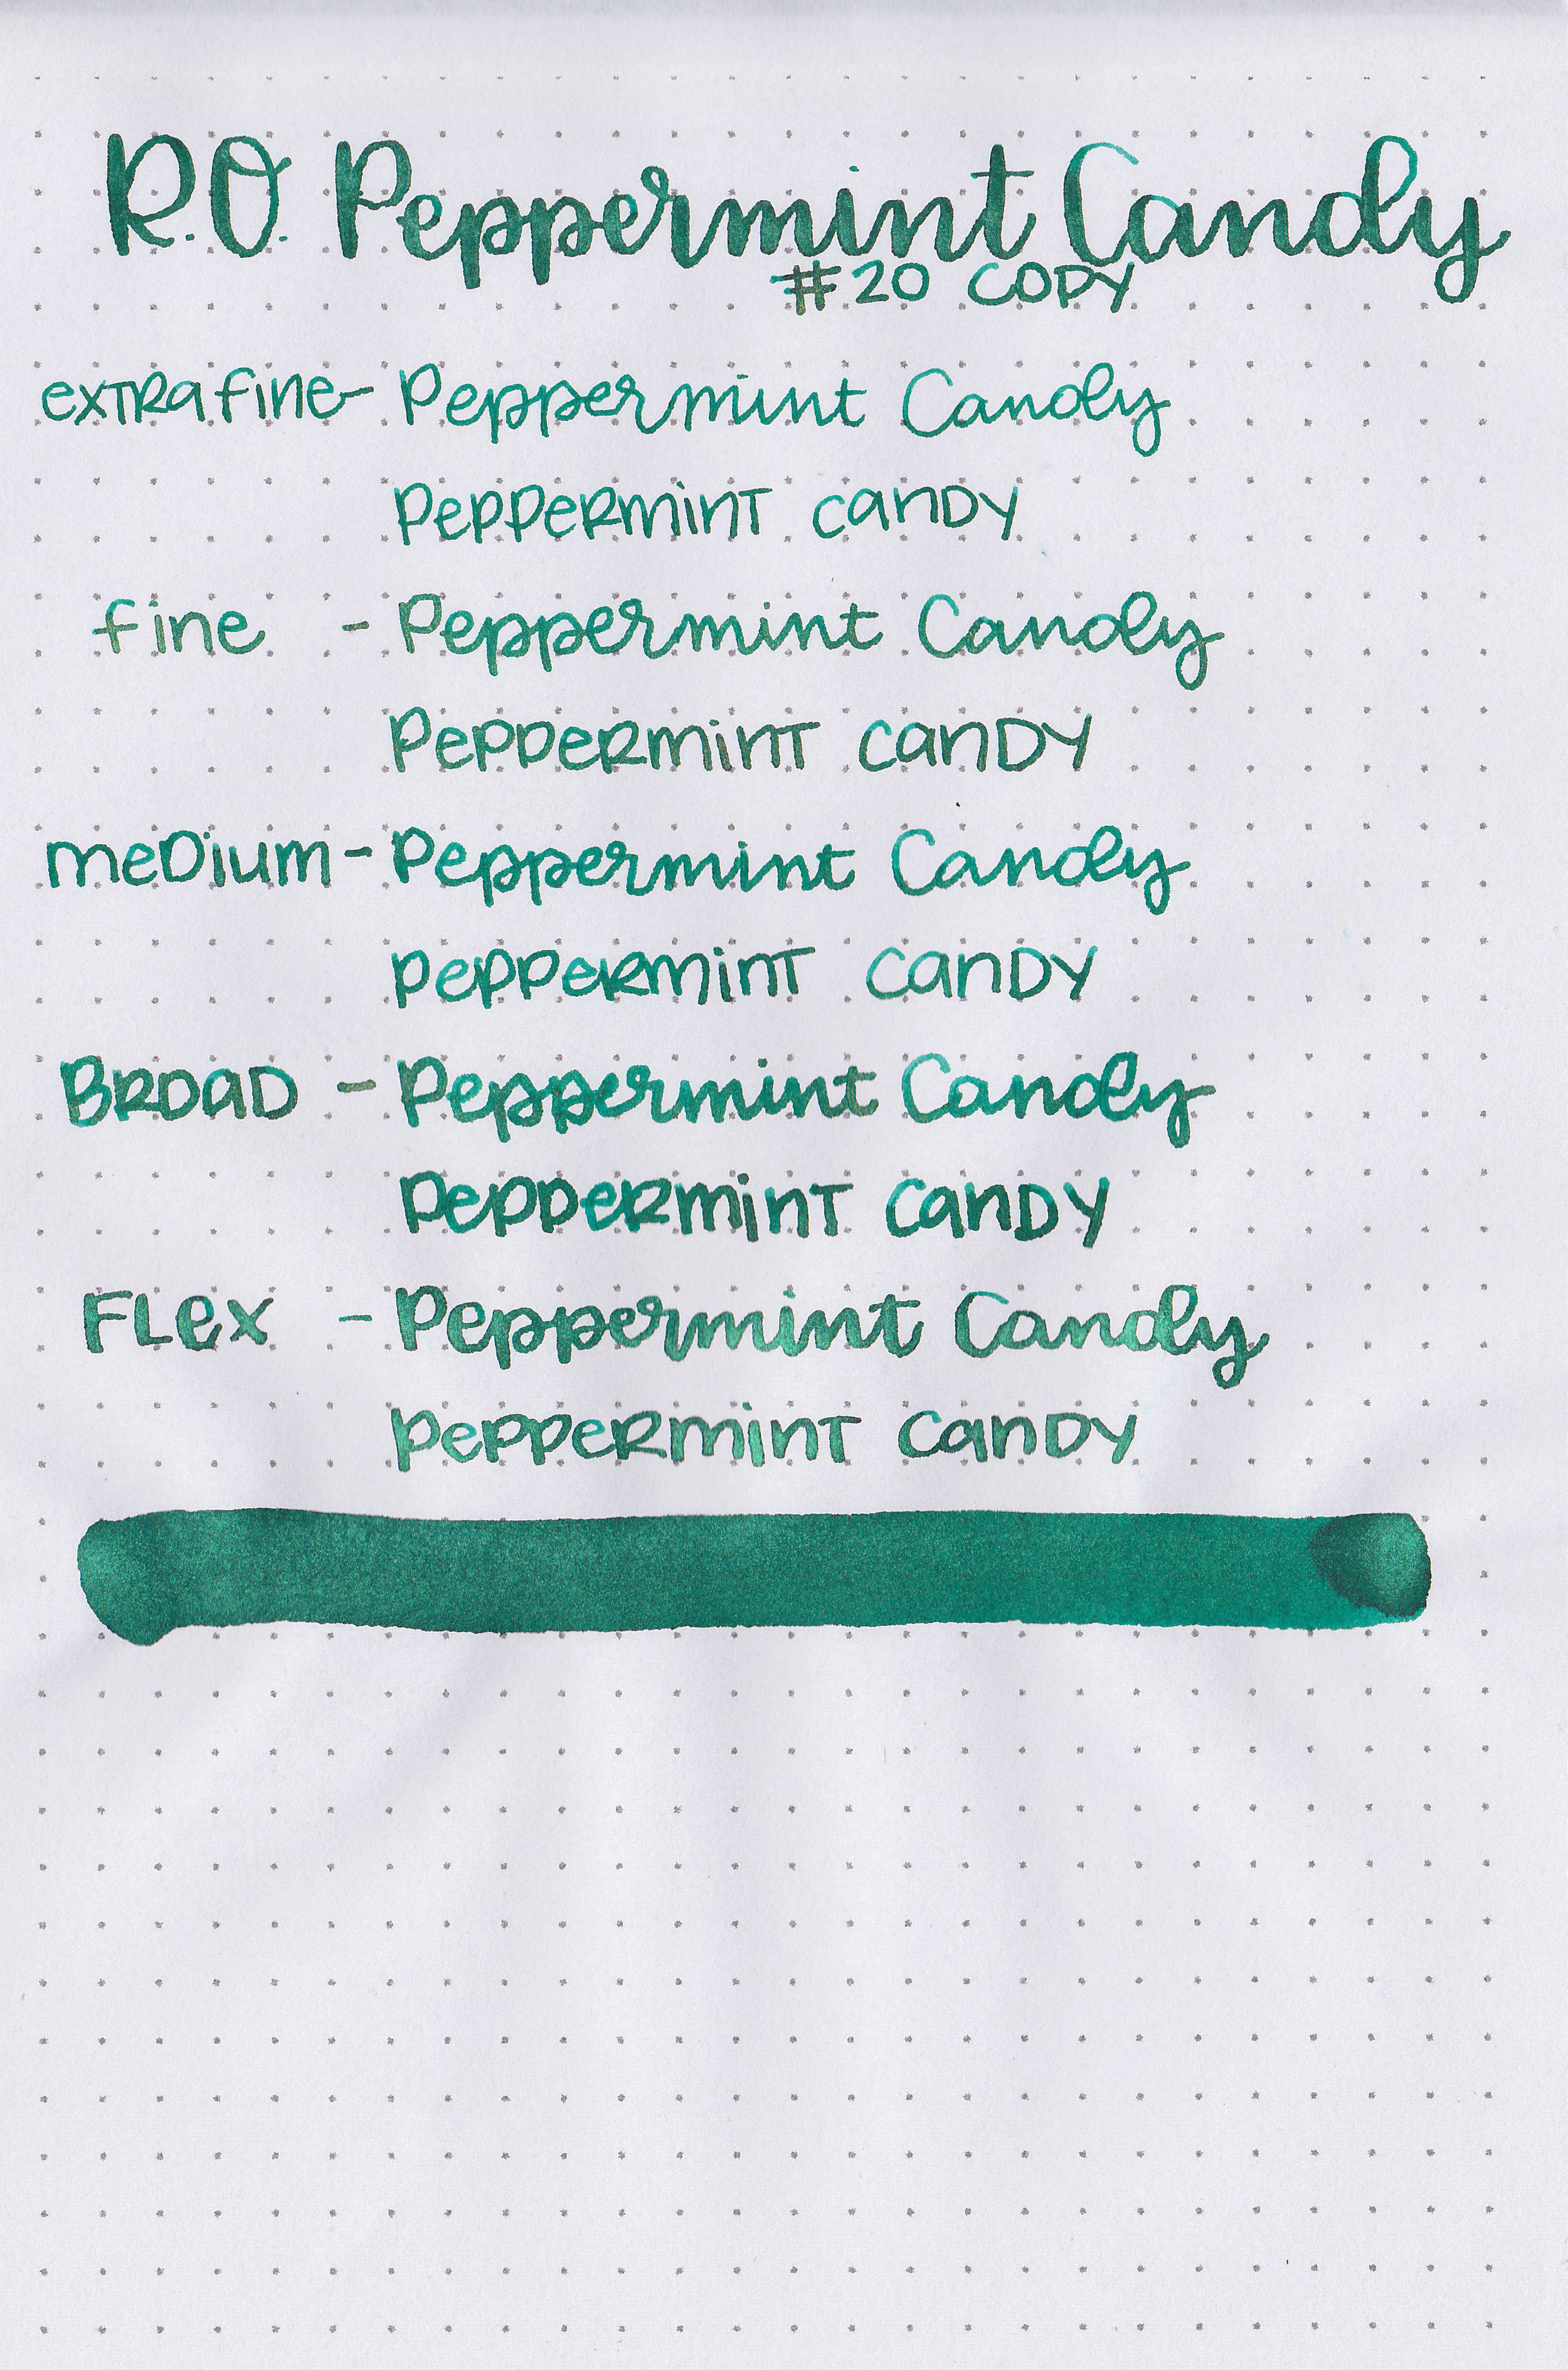 R.O. Peppermint Candy
#20 COPY
extra fine - Peppermint Candy
Peppermint Candy
fine - Peppermint Candy
Peppermint Candy
medium - Peppermint Candy
Peppermint Candy
Broad - Peppermint Candy
Peppermint Candy
Flex - Peppermint Candy
Peppermint Candy